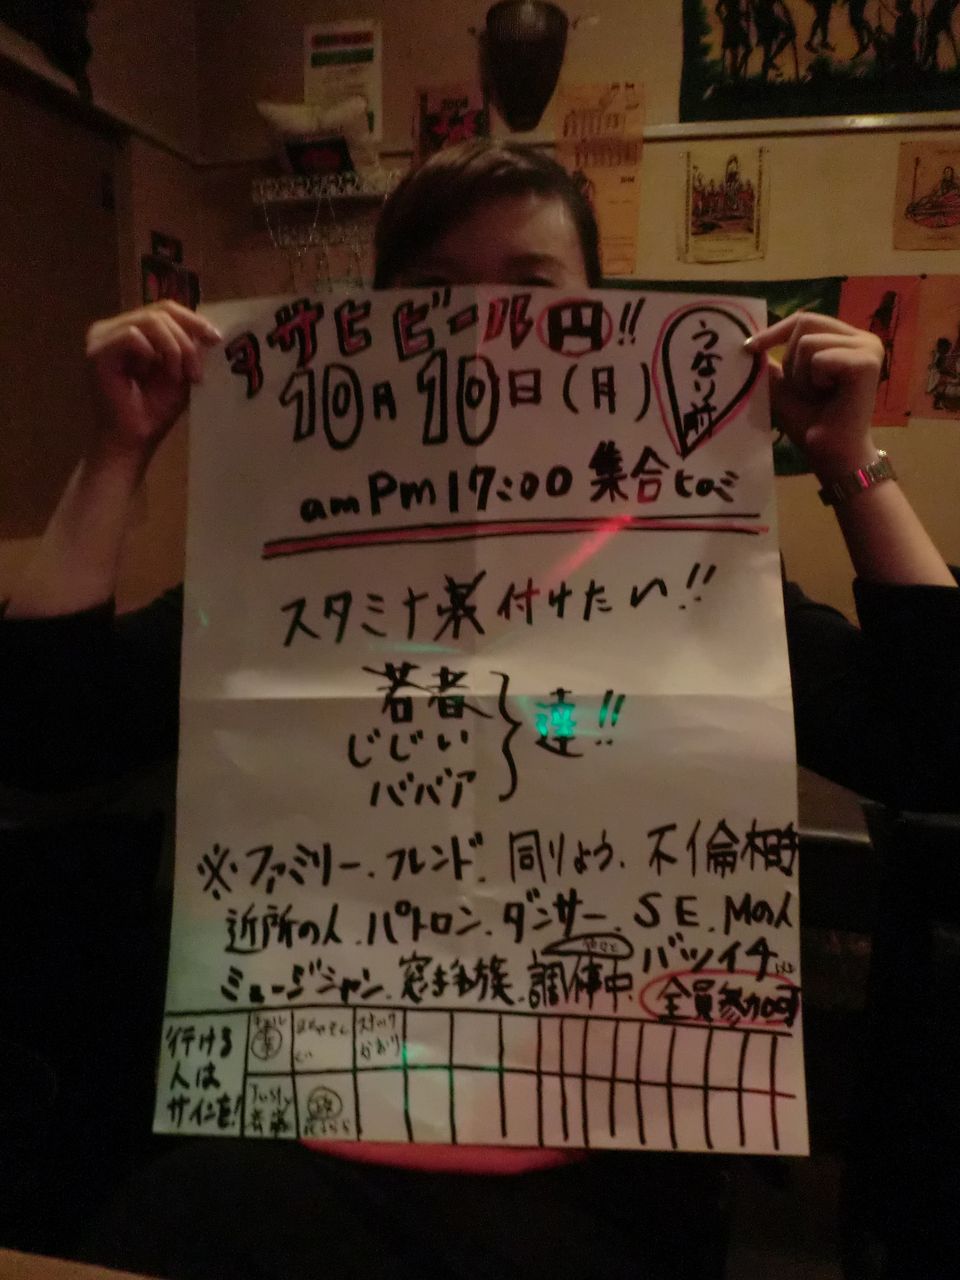 アサヒビール円!!
10月10日(月)
うなり前
am Pm 17:00 集合
スタミナ 付けたい!!
若者
じじい
ババア
達!!
※ファミリー、フレンド、同りょう、不倫相手
近所の人、パトロン、ダンサー、SE、Mの人
ミュージシャン、窓ぎわ族、調停中、バツイチ
全員参加可
行ける
人は
サインを!